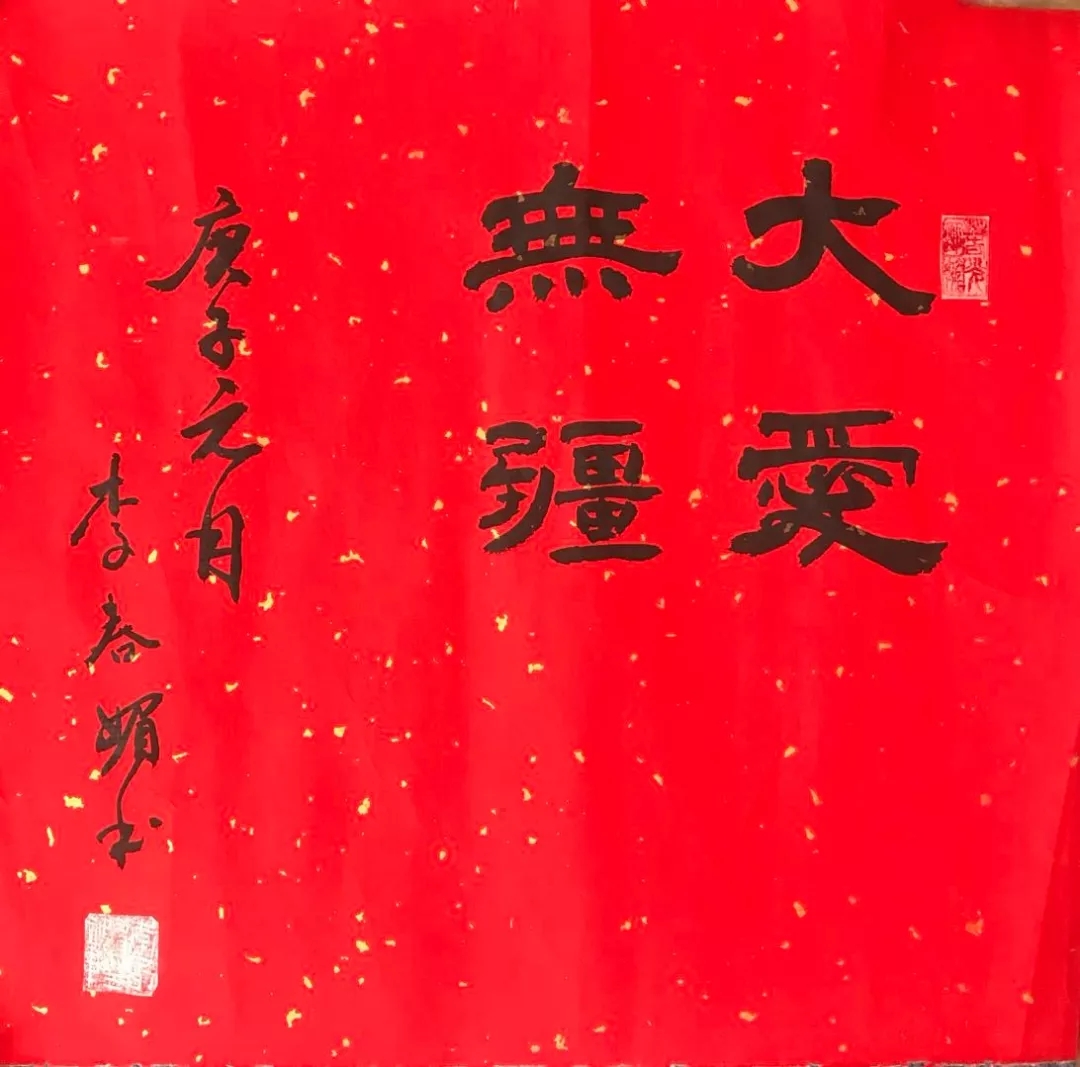 大愛
無疆
庚子元月
李春娟书